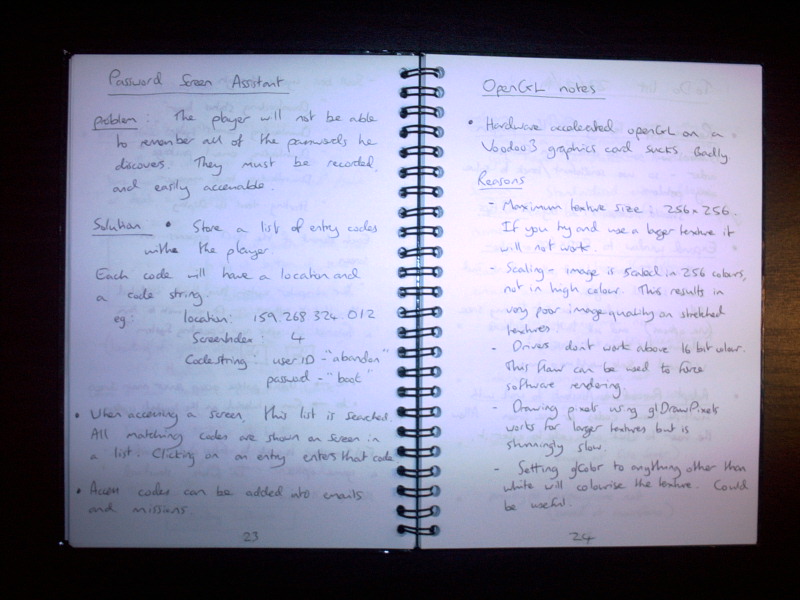 Password Screen Assistant
problem : The player will not be able
to remember all of the passwords he
discovers. They must be recorded,
and easily accessable.
Solution • Store a list of entry codes
withe the player.
Each code will have a location and
a code string.
eg : location: 159.268.324.012
ScreenIndex : 4
Codestring : userID - "abandon"
password - "boot"
• When accessing a screen, this list is searched.
All matching codes are shown on screen in
a list. Clicking on an entry enters that code
• Access codes can be added into emails
and missions
23
OpenGL notes
• Hardware accelerated openGL on a
Voodoo3 graphics card sucks. Badly.
Reasons
- Maximum texture size : 256x256.
If you try and use a larger texture it
will not work.
- Scaling - image is scaled in 256 colours,
not in high colour. This results in
very poor image quality on stretched
textures
- Drivers don't work above 16 bit colour.
This flaw can be used to force
software rendering.
- Drawing pixels using glDrawPixels
works for larger textures but is
stunningly slow.
- Setting glColor to anything other than
white will colourise the texture. Could
be useful.
24